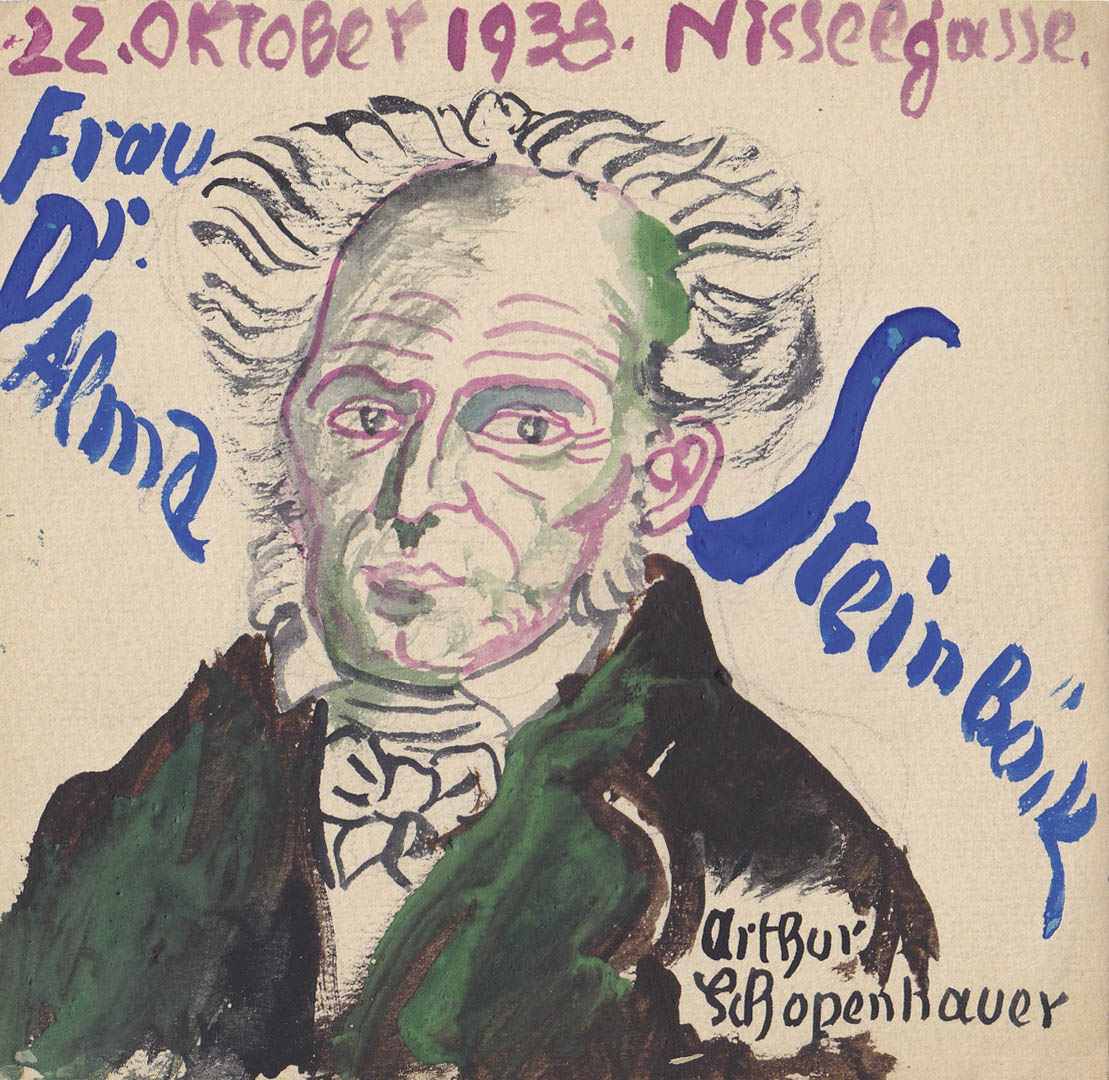 22. Oktober 1938. Nisselgasse.
Frau
Dr.
Alma
Steinböck
Arthur
Schopenhauer